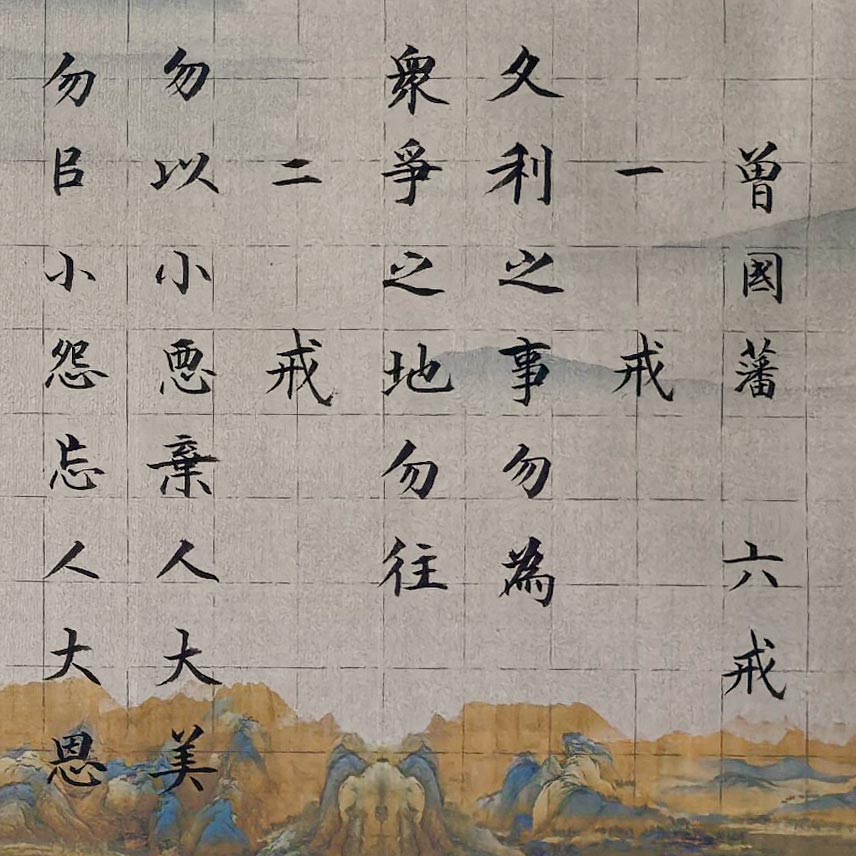 曾國藩 六戒
一 戒
久利之事勿為
衆爭之地勿往
二 戒
勿以小悪棄人大美
勿㠯小怨忘人大恩